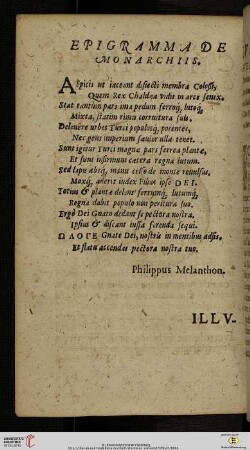 EPIGRAMMA DE
MONARCHIIS.
Aspicis ut iaceant disiecti membra Colossi,
Quem Rex Chaldæa vidit in arce senex.
Stat tantùm pars ima pedum ferroq́, lutoq́,
Mixta, statim rimis corruitura suis.
Delevere urbes Turci populosq́, potentes,
Nec gens imperium sævior ulla tenet.
Sunt igitur Turci magna pars ferrea planta,
Et sunt infirmum cætera regna lutum.
Sed lapis absq́, manu celso de monte revulsus,
Moxq́, aderit index Filius ipse DEI.
Totus & planta delens ferrumq́, lutumq́,
Regna dabit populo non peritura suo.
Ergò Dei Gnato dedant se pectora nostra,
Ipsius & discant iussa ferenda sequi.
Ω ΛΟΓΕ Gnate Dei, nostris in mentibus adsis,
Et flatu accendas pectora nostra tuo.
Philippus Melanthon.
ILLV-